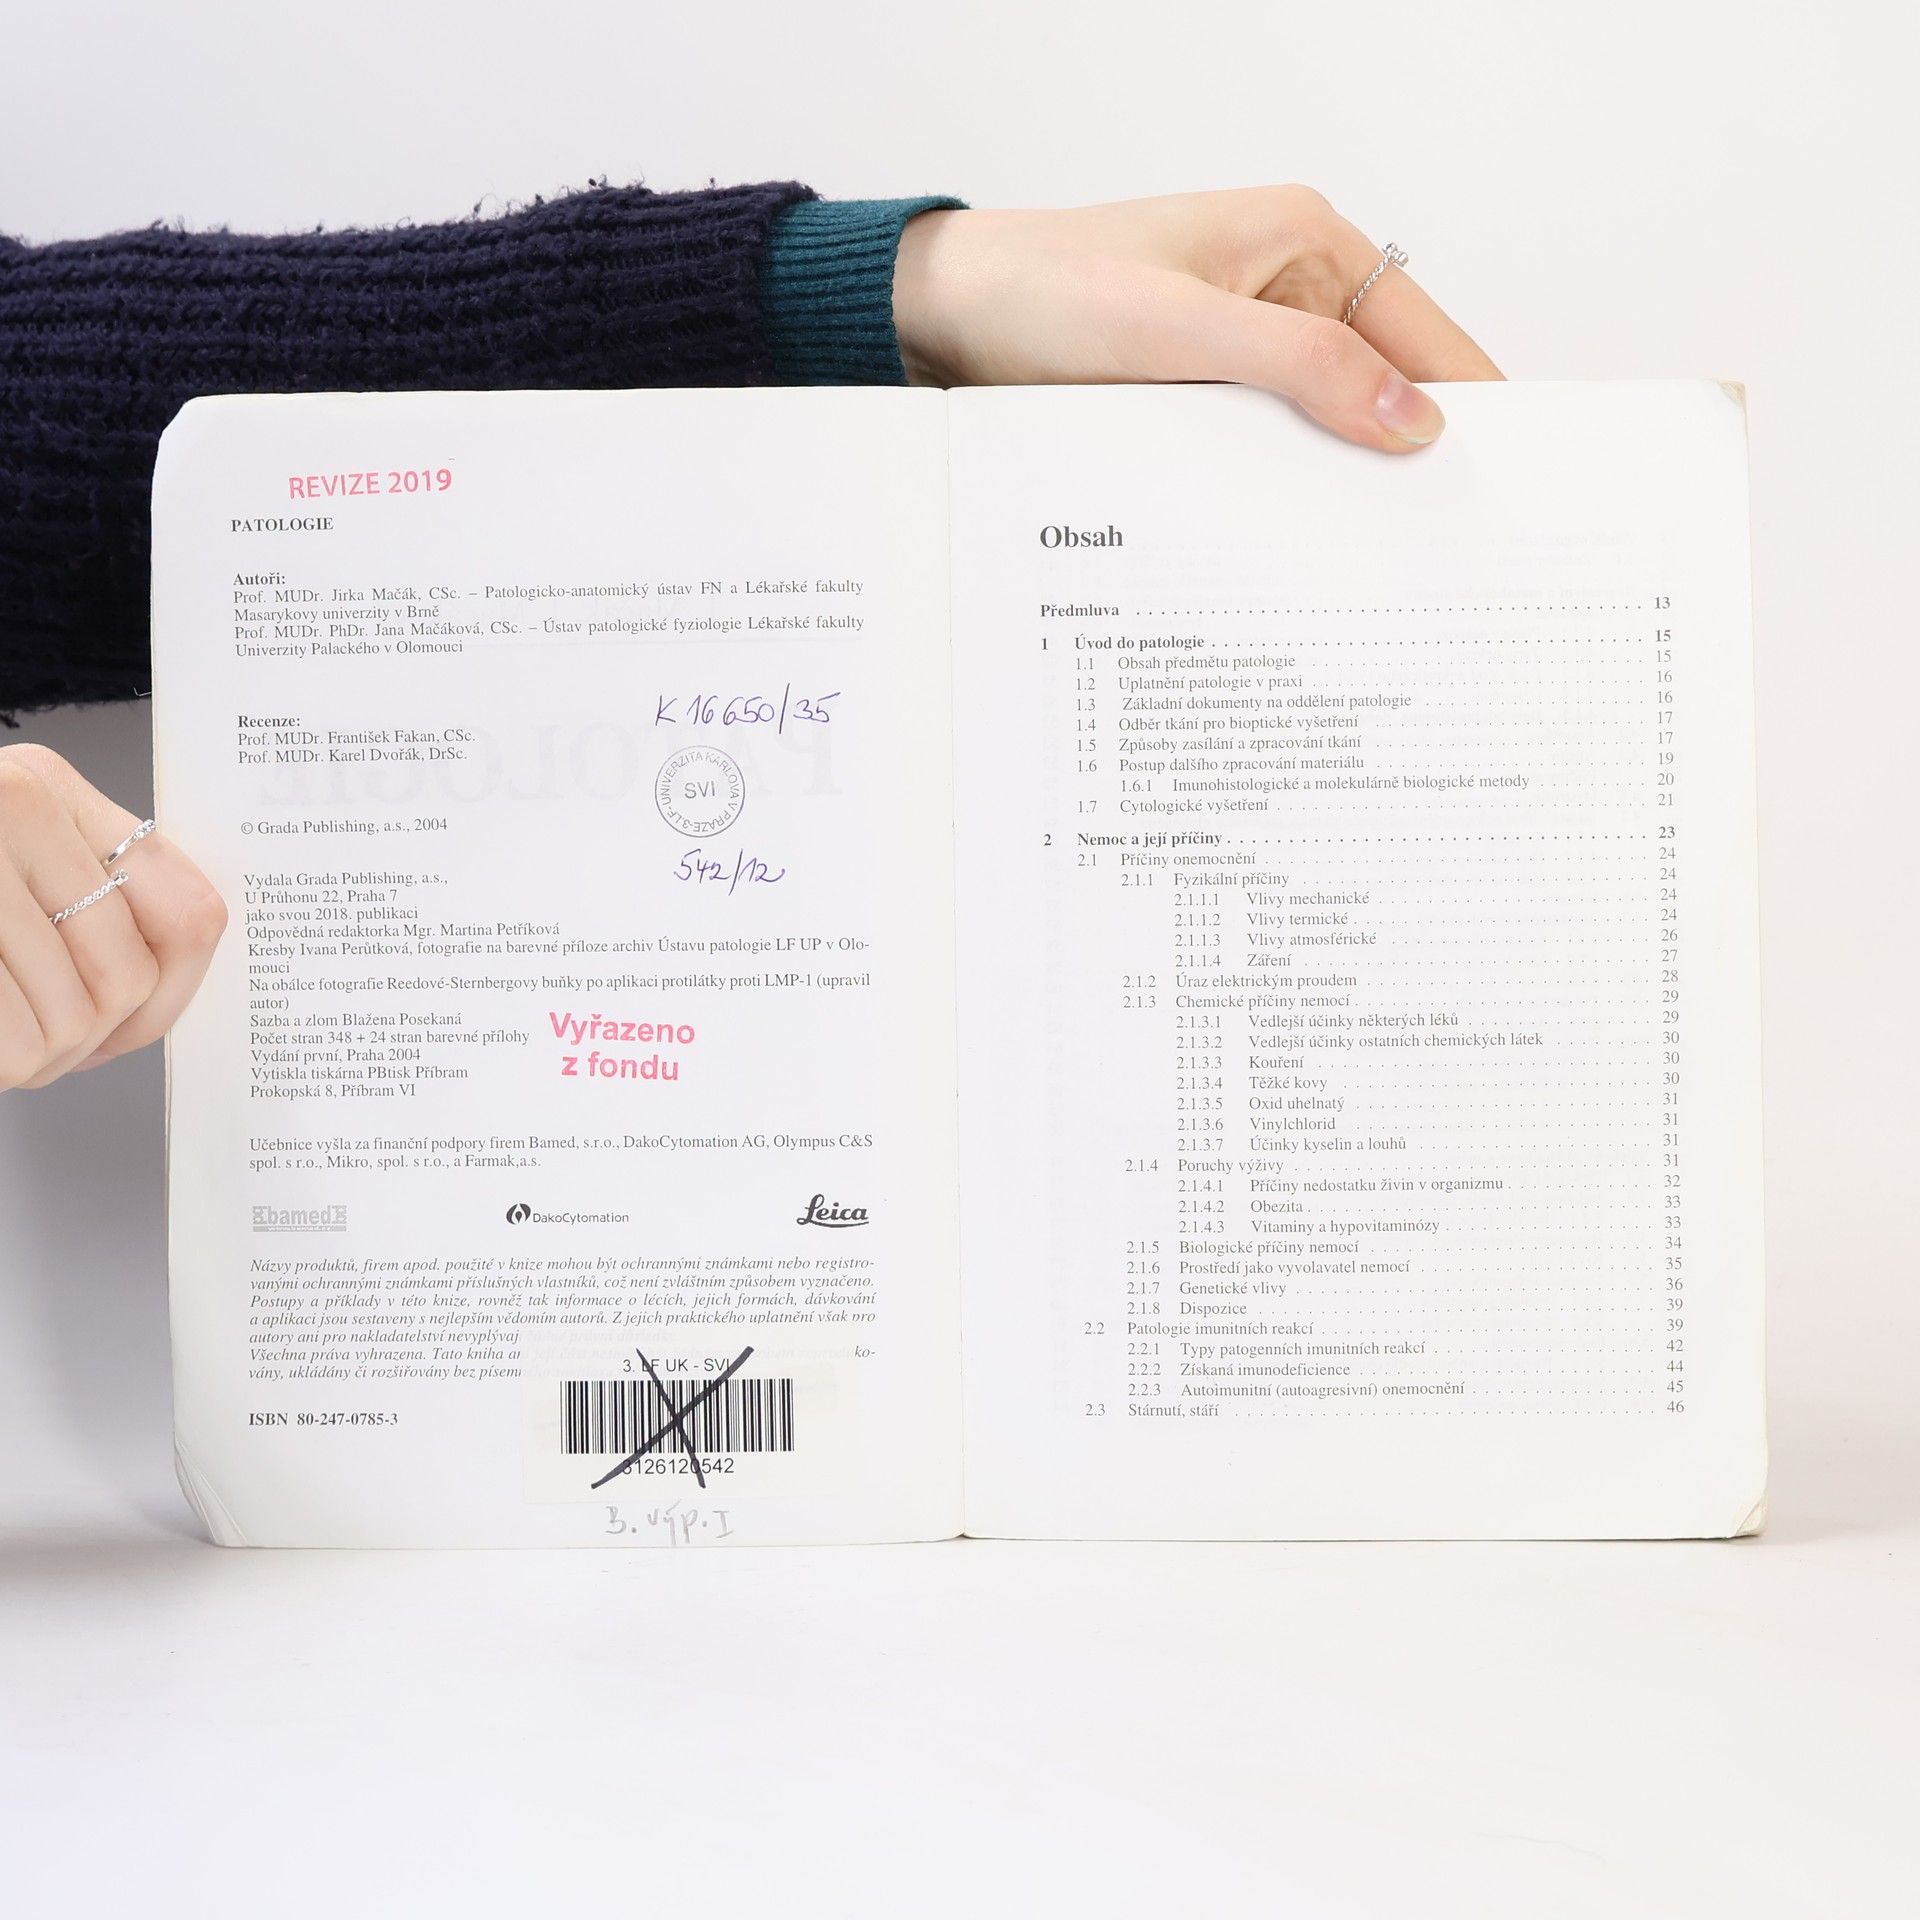 REVIZE 2019
PATOLOGIE
Autoři:
Prof. MUDr. Jirka Mačák, CSc. – Patologicko-anatomický ústav FN a Lékařské fakulty
Masarykovy univerzity v Brně
Prof. MUDr. PhDr. Jana Mačáková, CSc. – Ústav patologické fyziologie Lékařské fakulty
Univerzity Palackého v Olomouci
K 16650/35
Recenze:
Prof. MUDr. František Fakan, CSc.
Prof. MUDr. Karel Dvořák, DrSc.
UNIVERZITA KARLOVA V PRAZE-3.LF-
SVI
© Grada Publishing, a.s., 2004
542/12
Vydala Grada Publishing, a.s.,
U Průhonu 22, Praha 7
jako svou 2018. publikaci
Odpovědná redaktorka Mgr. Martina Petříková
Kresby Ivana Perůtková, fotografie na barevné příloze archiv Ústavu patologie LF UP v Olo-
mouci
Na obálce fotografie Reedové-Sternbergovy buňky po aplikaci protilátky proti LMP-1 (upravil
autor)
Sazba a zlom Blažena Posekaná
Počet stran 348 + 24 stran barevné přílohy
Vydání první, Praha 2004
Vytiskla tiskárna PBtisk Příbram
Prokopská 8, Příbram VI
Vyřazeno
z fondu
Učebnice vyšla za finanční podpory firem Bamed, s.r.o., DakoCytomation AG, Olympus C&S
spol. s r.o., Mikro, spol. s r.o., a Farmak,a.s.
bamed DakoCytomation Leica
Názvy produktů, firem apod. použité v knize mohou být ochrannými známkami nebo registro-
vanými ochrannými známkami příslušných vlastníků, což není zvláštním způsobem vyznačeno.
Postupy a příklady v této knize, rovněž tak informace o lécích, jejich formách, dávkování
a aplikaci jsou sestaveny s nejlepším vědomím autorů. Z jejich praktického uplatnění však pro
autory ani pro nakladatelství nevyplývaj
Všechna práva vyhrazena. Tato kniha an ko-
vány, ukládány či rozšiřovány bez písemn
3. LF UK - SVI
3126120542
ISBN 80-247-0785-3
3. výp. I
Obsah
Předmluva . . . . . 13
1 Úvod do patologie . . . . . 15
1.1 Obsah předmětu patologie . . . . . 15
1.2 Uplatnění patologie v praxi . . . . . 16
1.3 Základní dokumenty na oddělení patologie . . . . . 16
1.4 Odběr tkání pro bioptické vyšetření . . . . . 17
1.5 Způsoby zasílání a zpracování tkání . . . . . 17
1.6 Postup dalšího zpracování materiálu . . . . . 19
1.6.1 Imunohistologické a molekulárně biologické metody . . . . . 20
1.7 Cytologické vyšetření . . . . . 21
2 Nemoc a její příčiny . . . . . 23
2.1 Příčiny onemocnění . . . . . 24
2.1.1 Fyzikální příčiny . . . . . 24
2.1.1.1 Vlivy mechanické . . . . . 24
2.1.1.2 Vlivy termické . . . . . 24
2.1.1.3 Vlivy atmosférické . . . . . 26
2.1.1.4 Záření . . . . . 27
2.1.2 Úraz elektrickým proudem . . . . . 28
2.1.3 Chemické příčiny nemocí . . . . . 29
2.1.3.1 Vedlejší účinky některých léků . . . . . 29
2.1.3.2 Vedlejší účinky ostatních chemických látek . . . . . 30
2.1.3.3 Kouření . . . . . 30
2.1.3.4 Těžké kovy . . . . . 30
2.1.3.5 Oxid uhelnatý . . . . . 31
2.1.3.6 Vinylchlorid . . . . . 31
2.1.3.7 Účinky kyselin a louhů . . . . . 31
2.1.4 Poruchy výživy . . . . . 31
2.1.4.1 Příčiny nedostatku živin v organizmu . . . . . 32
2.1.4.2 Obezita . . . . . 33
2.1.4.3 Vitaminy a hypovitaminózy . . . . . 33
2.1.5 Biologické příčiny nemocí . . . . . 34
2.1.6 Prostředí jako vyvolavatel nemocí . . . . . 35
2.1.7 Genetické vlivy . . . . . 36
2.1.8 Dispozice . . . . . 39
2.2 Patologie imunitních reakcí . . . . . 39
2.2.1 Typy patogenních imunitních reakcí . . . . . 42
2.2.2 Získaná imunodeficience . . . . . 44
2.2.3 Autoimunitní (autoagresivní) onemocnění . . . . . 45
2.3 Stárnutí, stáří . . . . . 46